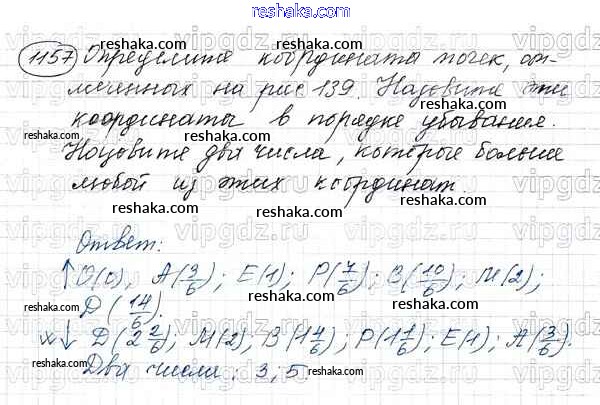 reshaka.com
1157 Определите координаты точек, от-
reshaka.com reshaka.com reshaka.com
меченных на рис 139. Назовите эти
координаты в порядке убывания.
reshaka.com reshaka.com reshaka.com
Назовите два числа, которые больше
любой из этих координат.
reshaka.com
Ответ:
reshaka.com reshaka.com reshaka.com
↑ O(0), A(3/6); E(1); P(7/6); B(10/6); M(2);
D(14/6).
reshaka.com reshaka.com reshaka.com
↓ D(2 2/6); M(2), B(1 4/6); P(1 1/6); E(1); A(3/6).
Два числа: 3; 5.
reshaka.com reshaka.com reshaka.com
reshaka.com